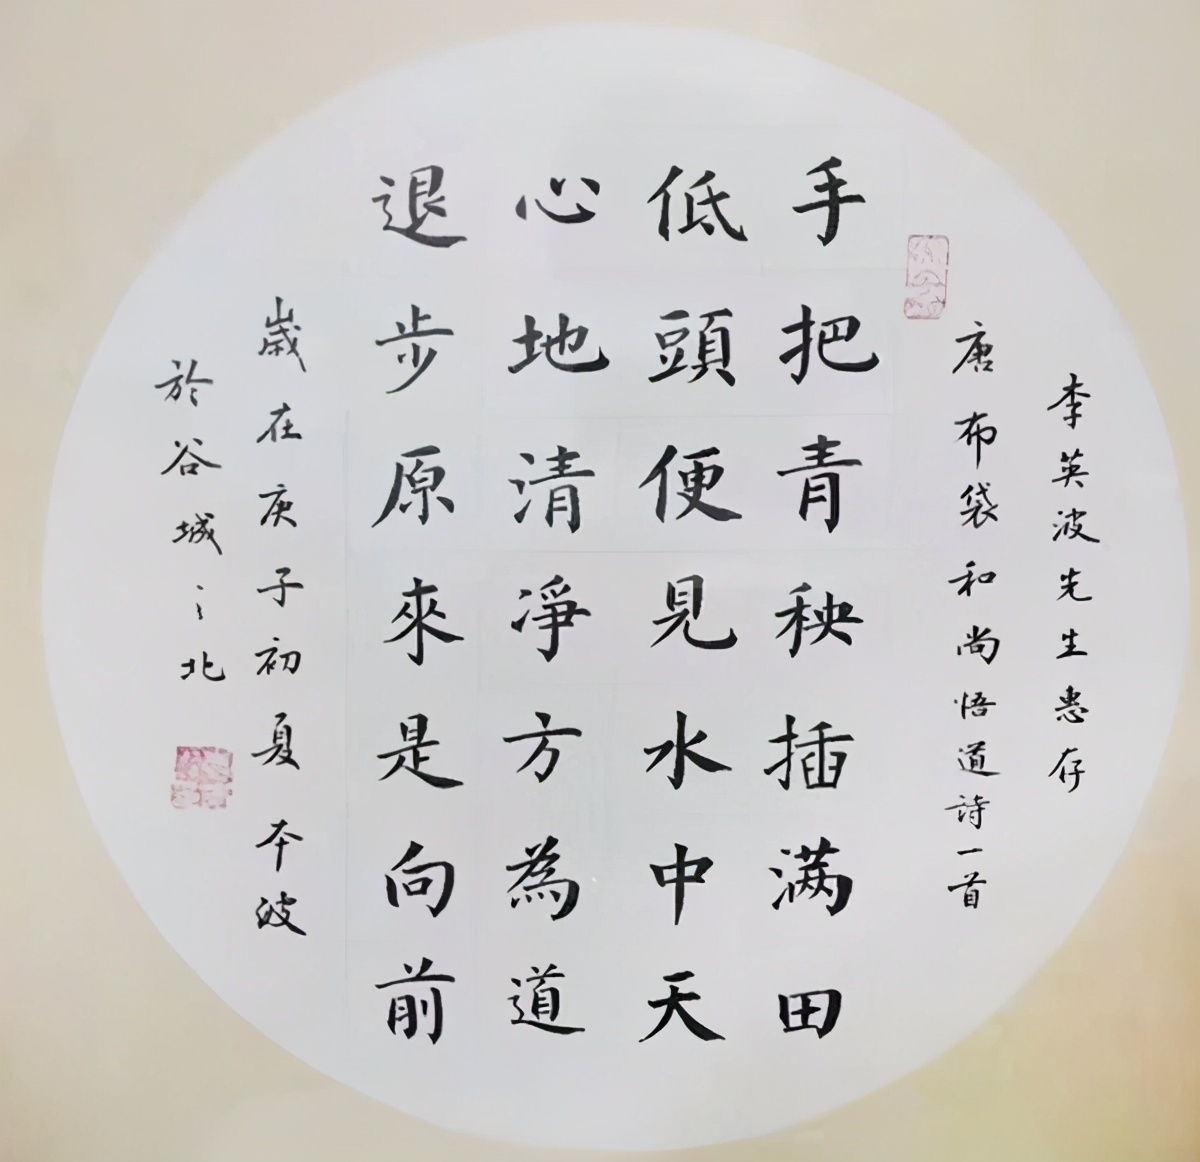 李英波先生惠存
唐布袋和尚悟道詩一首
手把青秧插满田
低頭便見水中天
心地清淨方為道
退步原來是向前
歲在庚子初夏本波
於谷城之北